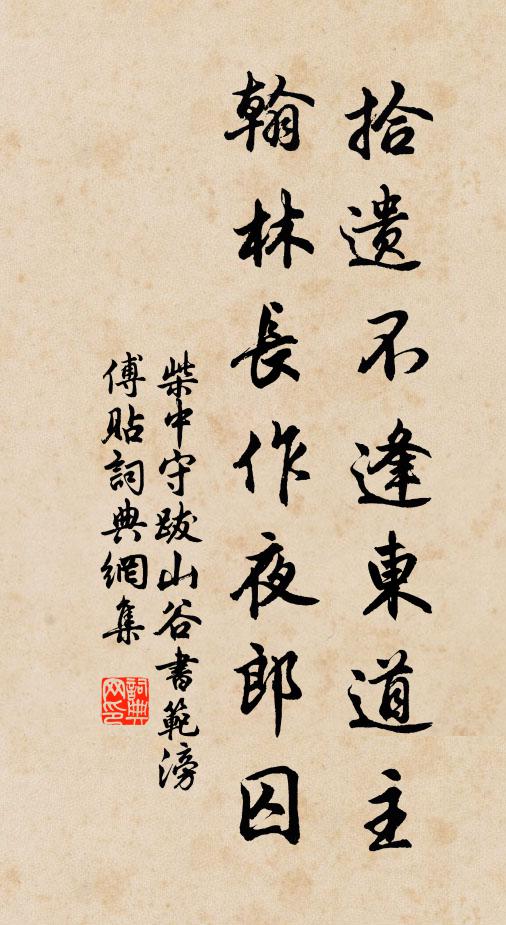 拾遺不逢東道主
翰林長作夜郎囚
柴中守跋山谷書範滂
傅貼詞典網集
詞典网印